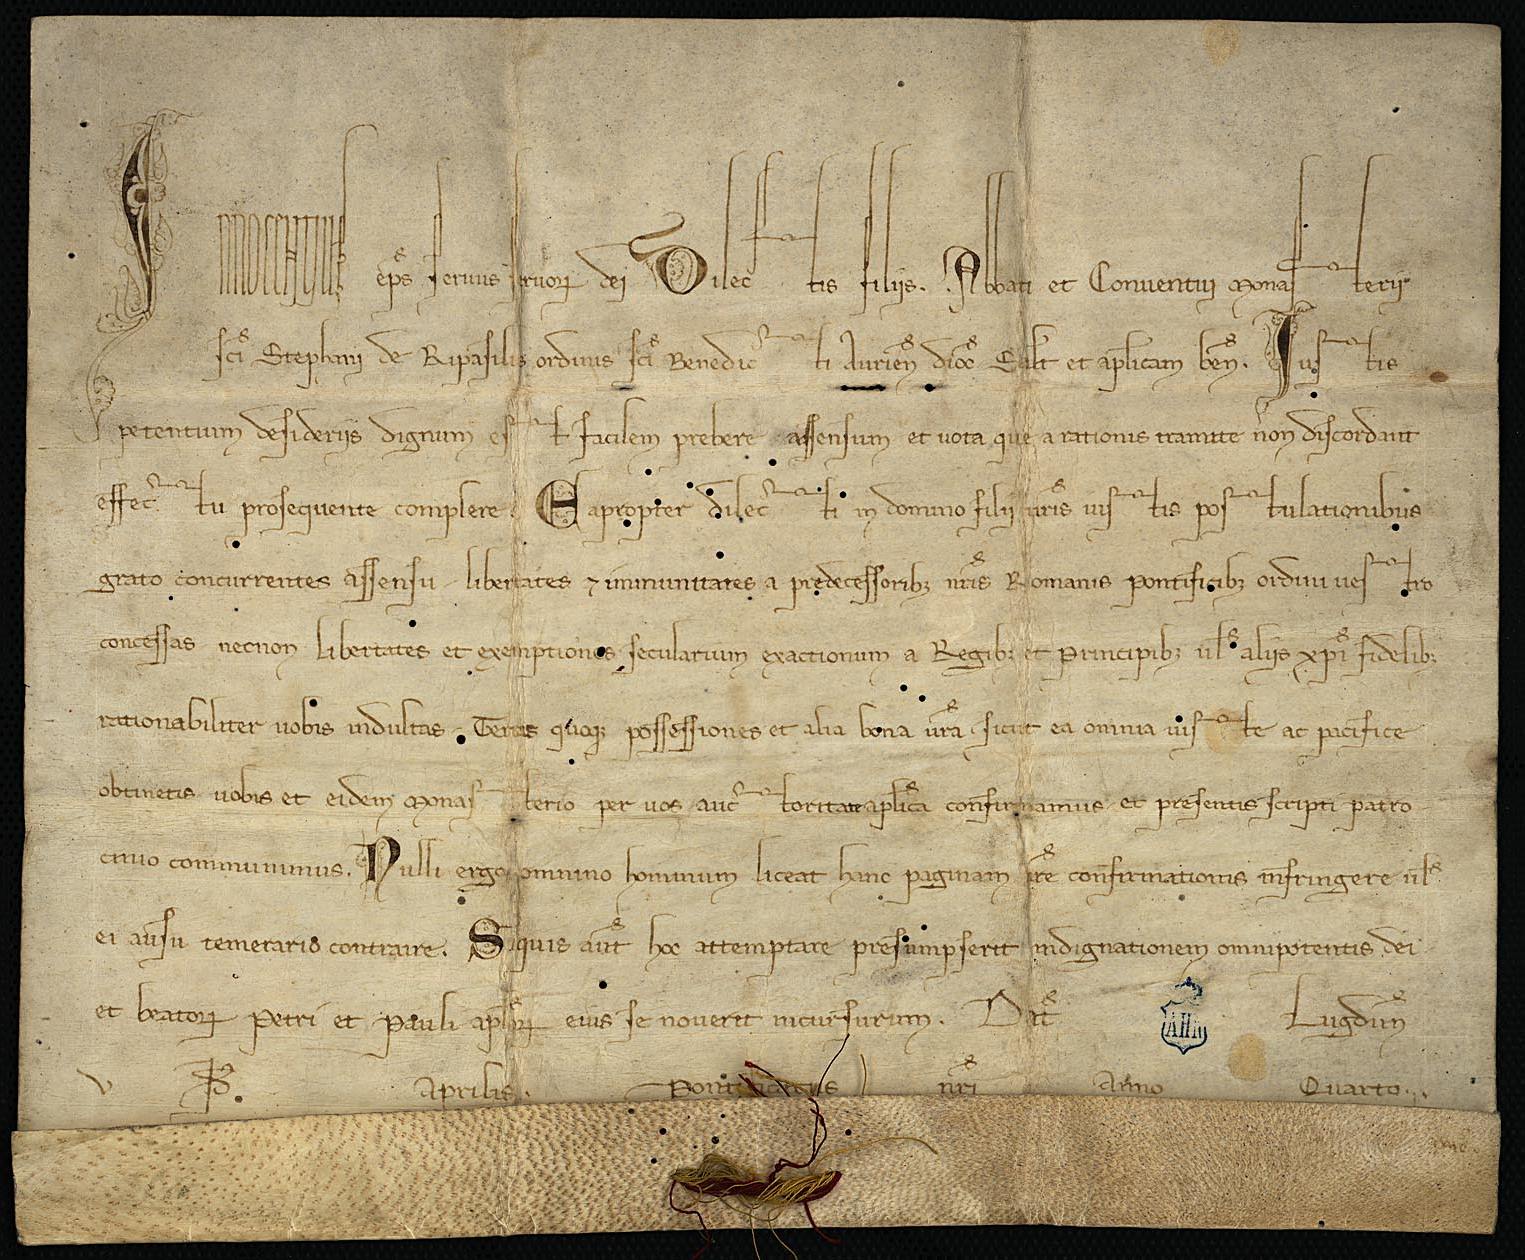 INNOCENTIUS ep̄s servus servoꝝ dei Dilectis filiis. Abbati et Conventui Monasterii
sc̄i Stephani de Ripasilis ordinis sc̄i Benedicti Aurien̄ dioc̄ Salt̄ et aplicam ben̄. Iustis
petentium desideriis dignum est facilem prebere assensum et vota que a rationis tramite non discordant
effectu prosequente complere. Eapropter dilecti in domino filii vr̄is iustis postulationibus
grato concurrentes assensu libertates ⁊ immunitates a predecessoribꝫ nr̄is Romanis pontificibꝫ ordini vestro
concessas necnon libertates et exemptiones secularium exactionum a Regibꝫ et Principibꝫ ul̄ aliis xp̄i fidelibꝫ
rationabiliter vobis indultas. Terras quoqꝫ possessiones et alia bona vr̄a sicut ea omnia iuste ac pacifice
obtinetis vobis et eidem Monasterio per vos auctoritate aplica confirmamus et presentis scripti patro
cinio communimus. Nulli ergo omnino hominum liceat hanc paginam nr̄e confirmationis infringere ul̄
ei ausu temerario contraire. Siquis aut̄ hoc attemptare presumpserit indignationem omnipotentis dei
et beatoꝝ Petri et Pauli aploꝝ eius se noverit incursurum. Dat̄ Lugdun̄
V Kl̄. Aprilis. Pontificatus nr̄i Anno Quarto.
AHN